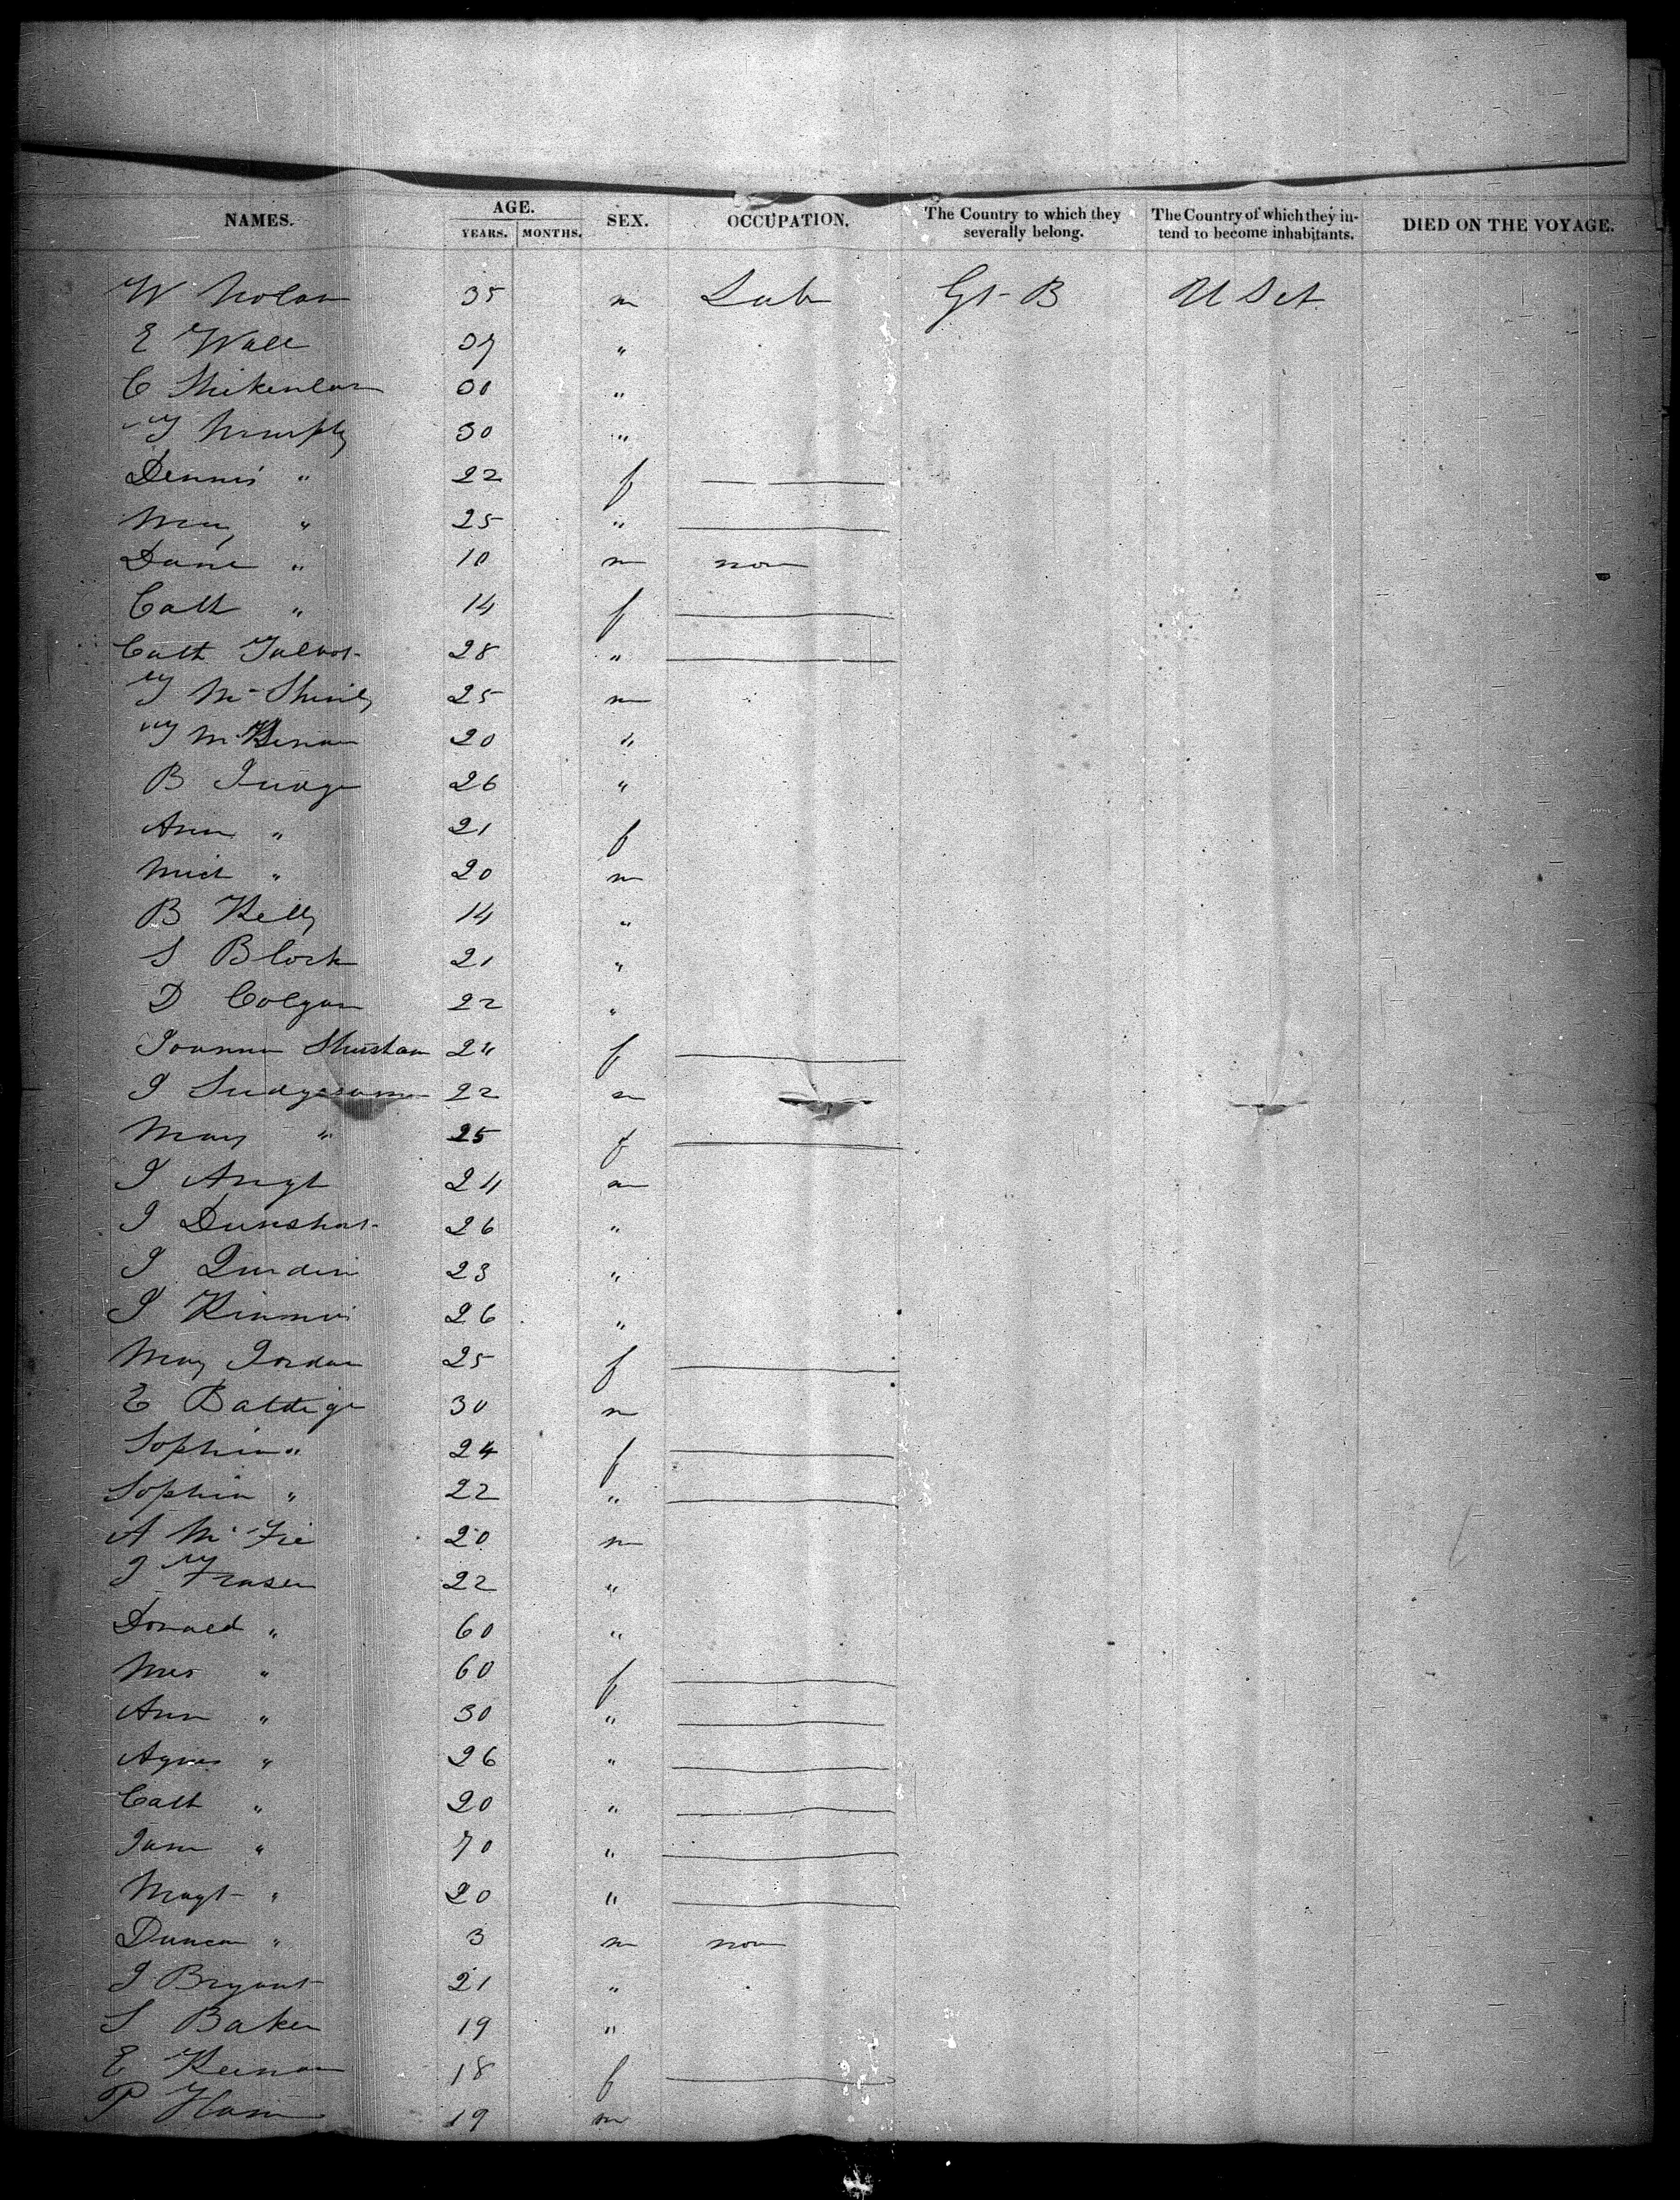 NAMES. AGE. YEARS. MONTHS. SEX. OCCUPATION. The Country to which they severally belong. The Country of which they intend to become inhabitants. DIED ON THE VOYAGE.
W Nolan 35 m Lab Gt B U St
E Wall 37 "
C 30 "
T Murphy 30 "
Dennis " 22 f
Mary " 25 "
" 10 m non
Cath " 14 f
Cath Talbot 28 "
T 25 m
T McKenan 20 "
B Judge 26 "
Ann " 21 f
Mich " 20 m
B Kelly 14 "
S Block 21 "
D Colgan 22 "
Joanna 24 f
J 22 m
Mary " 25 f
J 24 m
J 26 "
J 23 "
J 26 "
Mary Jordan 25 f
E Battige 30 m
Sophia " 24 f
Sophia " 22 "
A McFie 20 m
J Fraser 22 "
Donald " 60 "
Mrs " 60 f
Ann " 30 "
Agnes " 26 "
Cath " 20 "
Jane " 70 "
Magt " 20 "
Duncan " 3 m non
J Bryant 21 "
S Baker 19 "
E Keenan 18 f
P 19 m